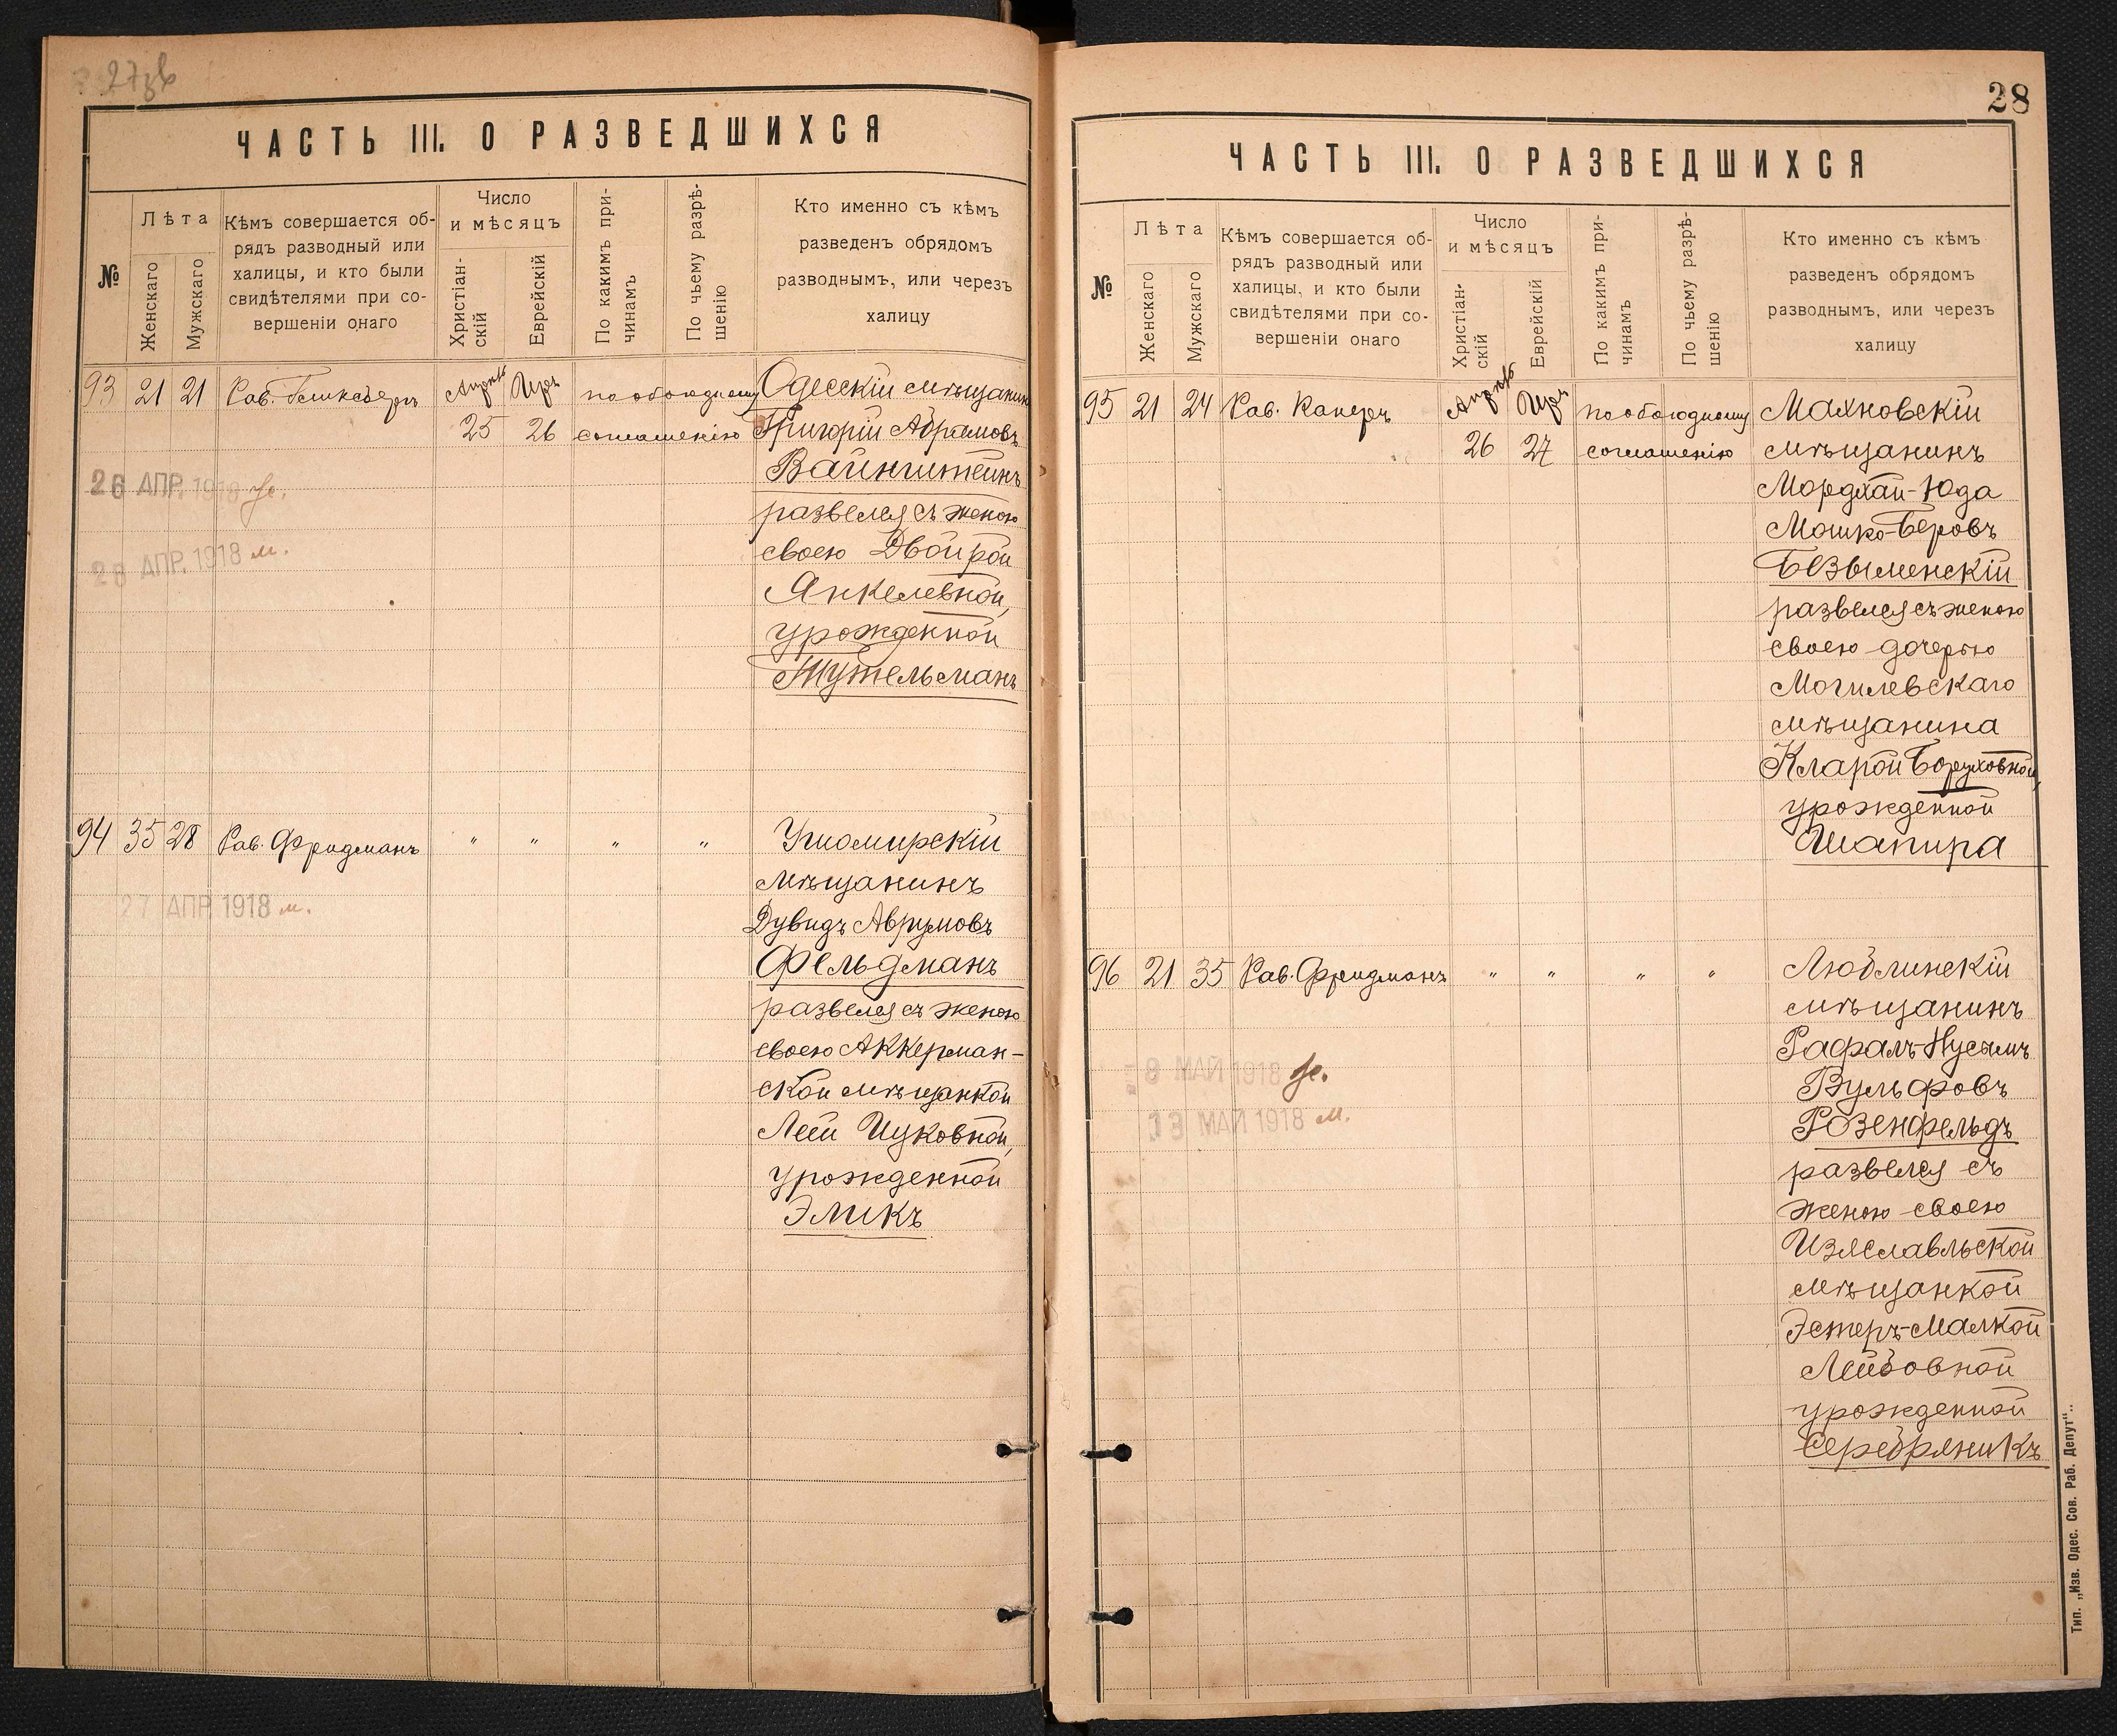 27
ЧАСТЬ III. О РАЗВЕДШИХСЯ
№
Лѣта
Женскаго
Мужскаго
Кѣмъ совершается об-
рядъ разводный или
халицы, и кто были
свидѣтелями при со-
вершеніи онаго
Число
и мѣсяцъ
Христіан-
скій
Еврейскій
По какимъ при-
чинамъ
По чьему разрѣ-
шенію
Кто именно съ кѣмъ
разведенъ обрядомъ
разводнымъ, или черезъ
халицу
93 21 21 Рав. Апрѣль Иръ по обоюдному Одесскій мѣщанин
25 26 соглашенію Григорій Абрамовъ
Вайнштейнъ
26 АПР. 1918 ж.
развелся съ женою
28 АПР. 1918 м.
своею Двойрой
Янкелевной,
урожденной
Тутельманъ
94 35 28 Рав. Фридманъ " " " " Ушомирскій
мѣщанинъ
27 АПР. 1918 м.
Дувидъ Аврумовъ
Фельдманъ
развелся съ женою
своею Аккерман-
ской мѣщанкой
Леей Ицковной,
урожденной
Эликъ
28
ЧАСТЬ III. О РАЗВЕДШИХСЯ
№
Лѣта
Женскаго
Мужскаго
Кѣмъ совершается об-
рядъ разводный или
халицы, и кто были
свидѣтелями при со-
вершеніи онаго
Число
и мѣсяцъ
Христіан-
скій
Еврейскій
По какимъ при-
чинамъ
По чьему разрѣ-
шенію
Кто именно съ кѣмъ
разведенъ обрядомъ
разводнымъ, или черезъ
халицу
95 21 24 Рав. Канеръ Апрѣль Иръ по обоюдному Махновскій
26 27 соглашенію мѣщанинъ
Мордхай-Юда
Мошко-Беровъ
Безыменскій
развелся съ женою
своею дочерью
Могилевскаго
мѣщанина
Кларой Боруховной,
урожденной
Шапира
96 21 35 Рав. Фридманъ " " " " Люблинскій
мѣщанинъ
Рафалъ-Нусымъ
8 МАЙ 1918 ж.
Вульфовъ
13 МАЙ 1918 м.
Розенфельдъ
развелся съ
женою своею
Изяславльской
мѣщанкой
Эстеръ-Малкой
Лейбовной
урожденной
Серебряникъ
Тип. „Изв. Одес. Сов. Раб. Депут“.